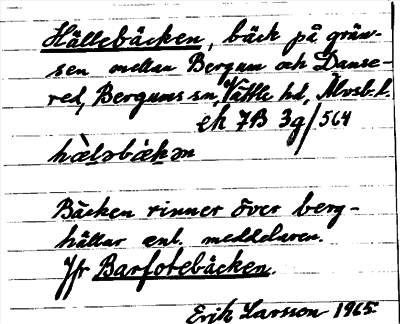 Hällebäcken, bäck på grän-
sen mellan Bergum och Danse-
red, Bergums sn, Vättle hd, Älvsb. l.
ek 7B 3g/564
hæ̀lǝbæ̀kǝn
Bäcken rinner över berg-
hällar enl. meddelaren.
Jfr Barfotebäcken.
Erik Larsson 1965